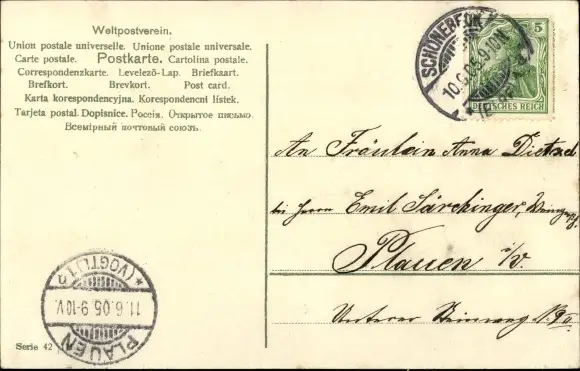 Weltpostverein.
Union postale universelle. Unione postale universale.
Carte postale. Postkarte. Cartolina postale.
Correspondenzkarte. Levelező-Lap. Briefkaart.
Brefkort. Brevkort. Post card.
Karta korespondencyjna. Korespondenční lístek.
Tarjeta postal. Dopisnice. Россія. Открытое письмо.
Всемірный почтовый союзъ.
5
DEUTSCHES REICH
An Fräulein Anna Dietzel
bei Herrn Emil Särchinger,
Plauen i/V.
Unterer Steinweg
PLAUEN
11.6.05 9-10V.
*(VOGTL)1
Serie 42